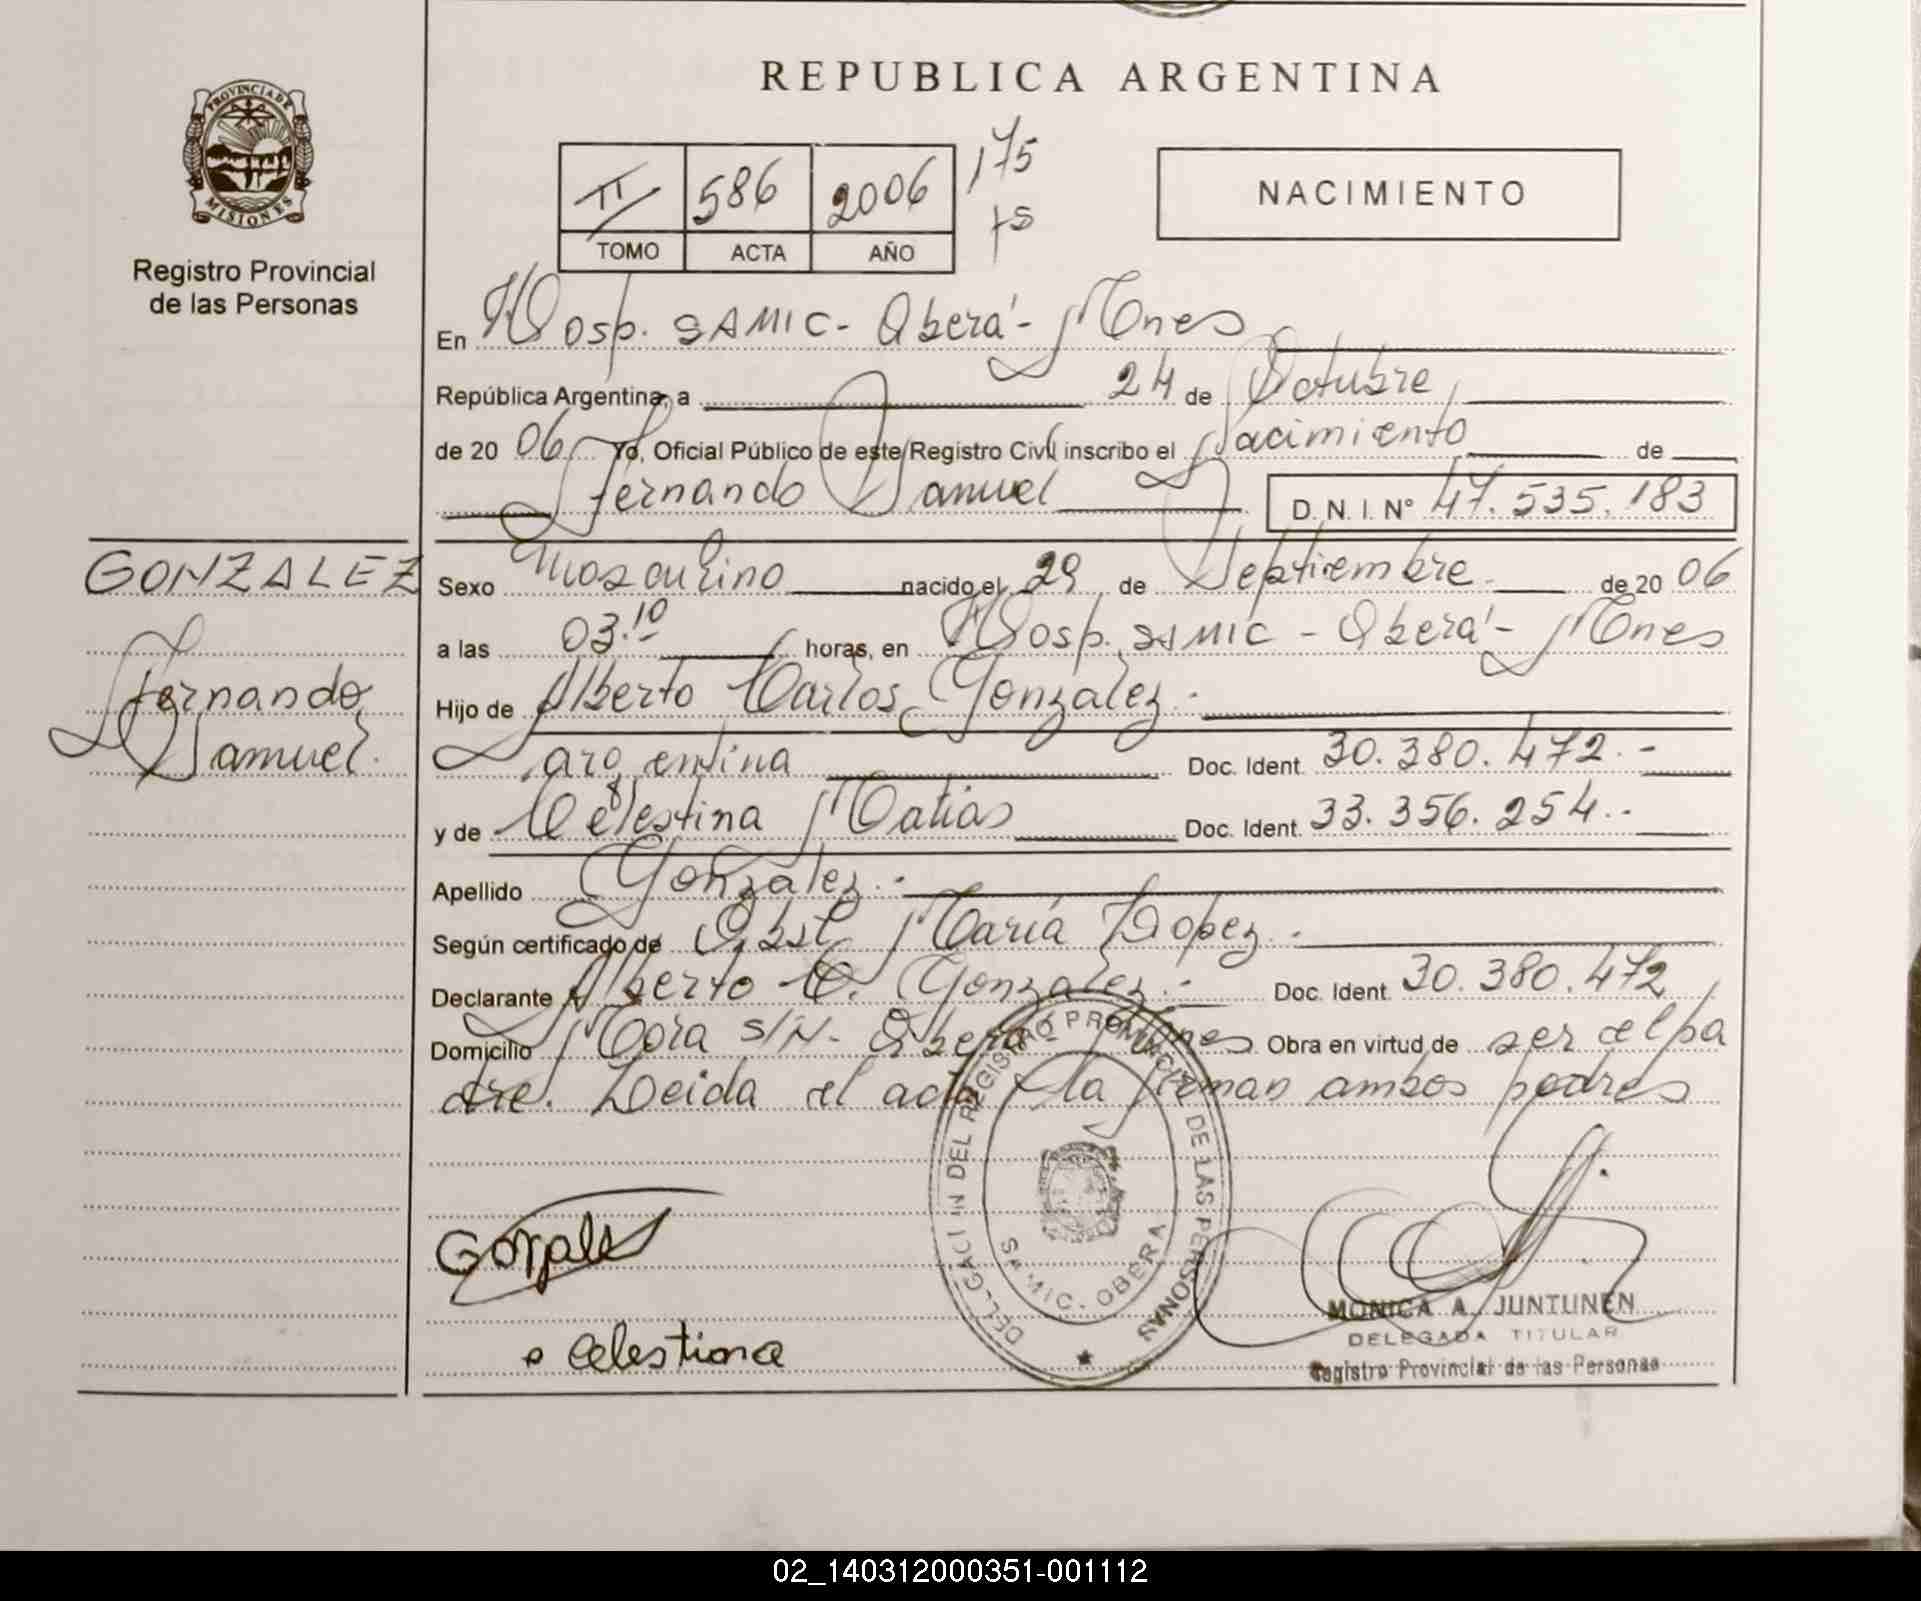 REPUBLICA ARGENTINA
PROVINCIA DE
MISIONES
Registro Provincial
de las Personas
II 586 2006 175
TOMO ACTA AÑO
NACIMIENTO
En Hosp. SAMIC - Oberá - Mnes
República Argentina, a 24 de Octubre
de 20 06 Yo, Oficial Público de este Registro Civil inscribo el Nacimiento de
Fernando Samuel D. N. I. N° 47.535.183
GONZALEZ
Fernando
Samuel.
Sexo Masculino nacido el 29 de Septiembre de 20 06
a las 03.10 horas, en Hosp. SAMIC - Oberá - Mnes
Hijo de Alberto Carlos Gonzalez.-
argentina Doc. Ident. 30.380.472.-
y de Celestina Matias Doc. Ident. 33.356.254.-
Apellido Gonzalez.-
Según certificado de Obst. María Lopez.-
Declarante Alberto C. Gonzalez.- Doc. Ident. 30.380.472
Domicilio Mora S/N - Oberá - Mnes Obra en virtud de ser el pa
dre. Leida el acta la firman ambos padres
DELEGACI N DEL REGISTRO PROVINCIAL DE LAS PERSONAS
SAMIC - OBERA
Gonzalez
Celestina
MONICA A. JUNTUNEN
DELEGADA TITULAR
Registro Provincial de las Personas
02_140312000351-001112